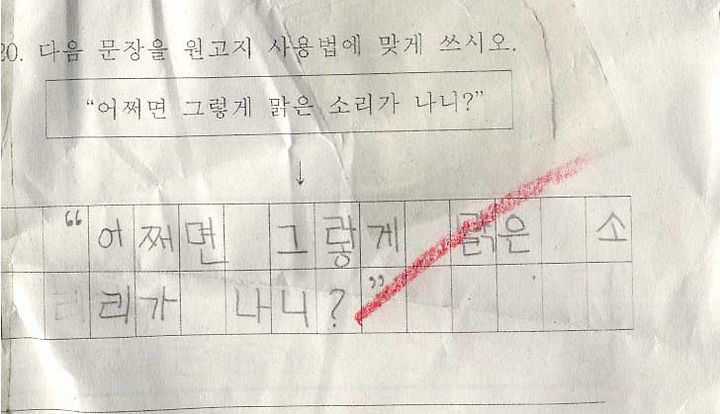 20. 다음 문장을 원고지 사용법에 맞게 쓰시오.
“어쩌면 그렇게 맑은 소리가 나니?”
↓
“어쩌면 그랗게 맑은 소
리가 나니?”